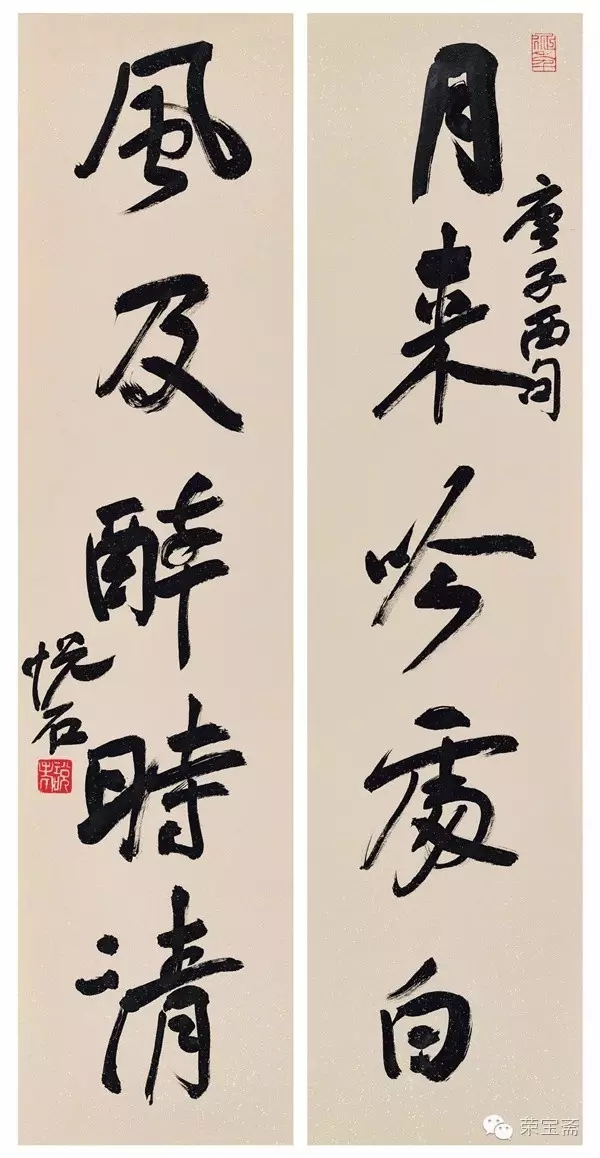 月来吟處白
唐子西句
風及醉時清
悦石
荣宝斋